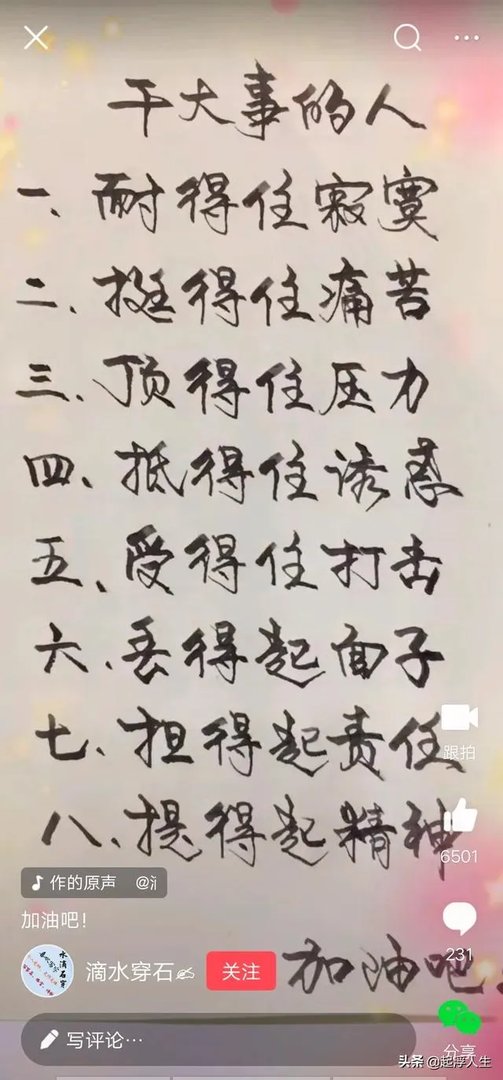 干大事的人
一、耐得住寂寞
二、挺得住痛苦
三、顶得住压力
四、抵得住诱惑
五、受得住打击
六、丢得起面子
七、担得起责任
八、提得起精神
跟拍
6501
作的原声 @氵
加油吧!
231
滴水穿石
关注
加油吧
写评论…
分享
头条 @起浮人生